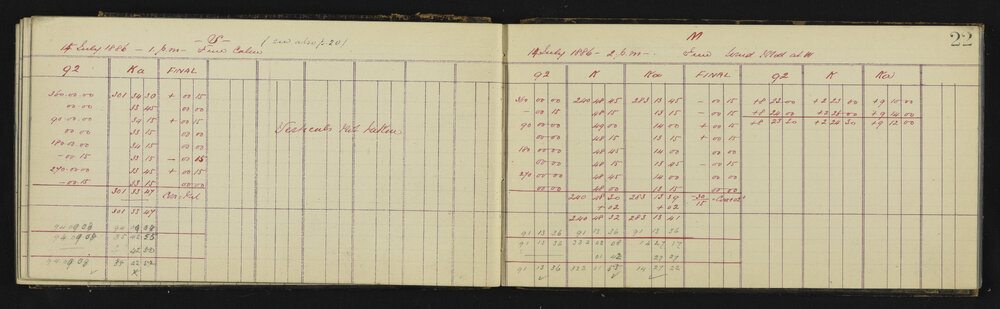 S (see also p.20)
14 July 1886 - 1 p.m - Fine Calm
92 Ka FINAL
360.00.00 301 34 30 + 00 15
00 00 33 45 00 00
90.00.00 34 15 + 00 15
00 00 33 15 00 00
180.00.00 34 15 00 00
- 00 15 33 15 - 00 15
270.00.00 33 45 + 00 15
- 00 15 33 15 00 00
301 33 47
301 33 47
94 09 08 94 09 08
94 09 08 35 42 55
42 50
94 09 08 35 42 52
Verticals not taken
M
22
14 July 1886 - 2 p.m - Fine Wind
92 K Ka FINAL 92 K Ka
360 00 00 240 48 45 283 13 45 - 00 15 +8 23 00 +2 23 00 +9 10 00
- 00 15 48 15 13 15 - 00 15 +8 24 00 +2 26 00 +9 14 00
90 00 00 49 00 14 00 + 00 15 +8 23 30 +2 24 30 +9 12 00
00 00 48 15 13 15 + 00 15
180 00 00 48 45 14 00 00 00
00 00 48 15 13 45 - 00 15
270 00 00 48 45 14 00 00 00
00 00 48 00 13 15 00 00
240 48 30 283 13 39
+ 02 + 02
240 48 32 283 13 41
91 13 36 91 13 36 91 13 36
91 13 36 332 02 08 14 27 17
01 42 27 27
91 13 36 332 01 55 14 27 22